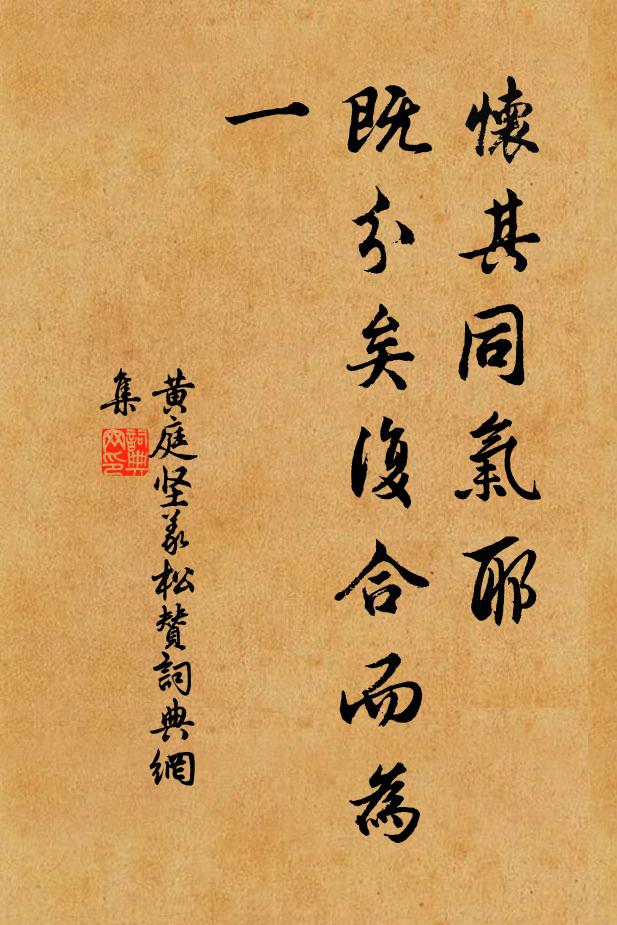 懷其同氣耶
既分矣復合而為
一
黄庭坚義松贊詞典網
集
詞典
网印